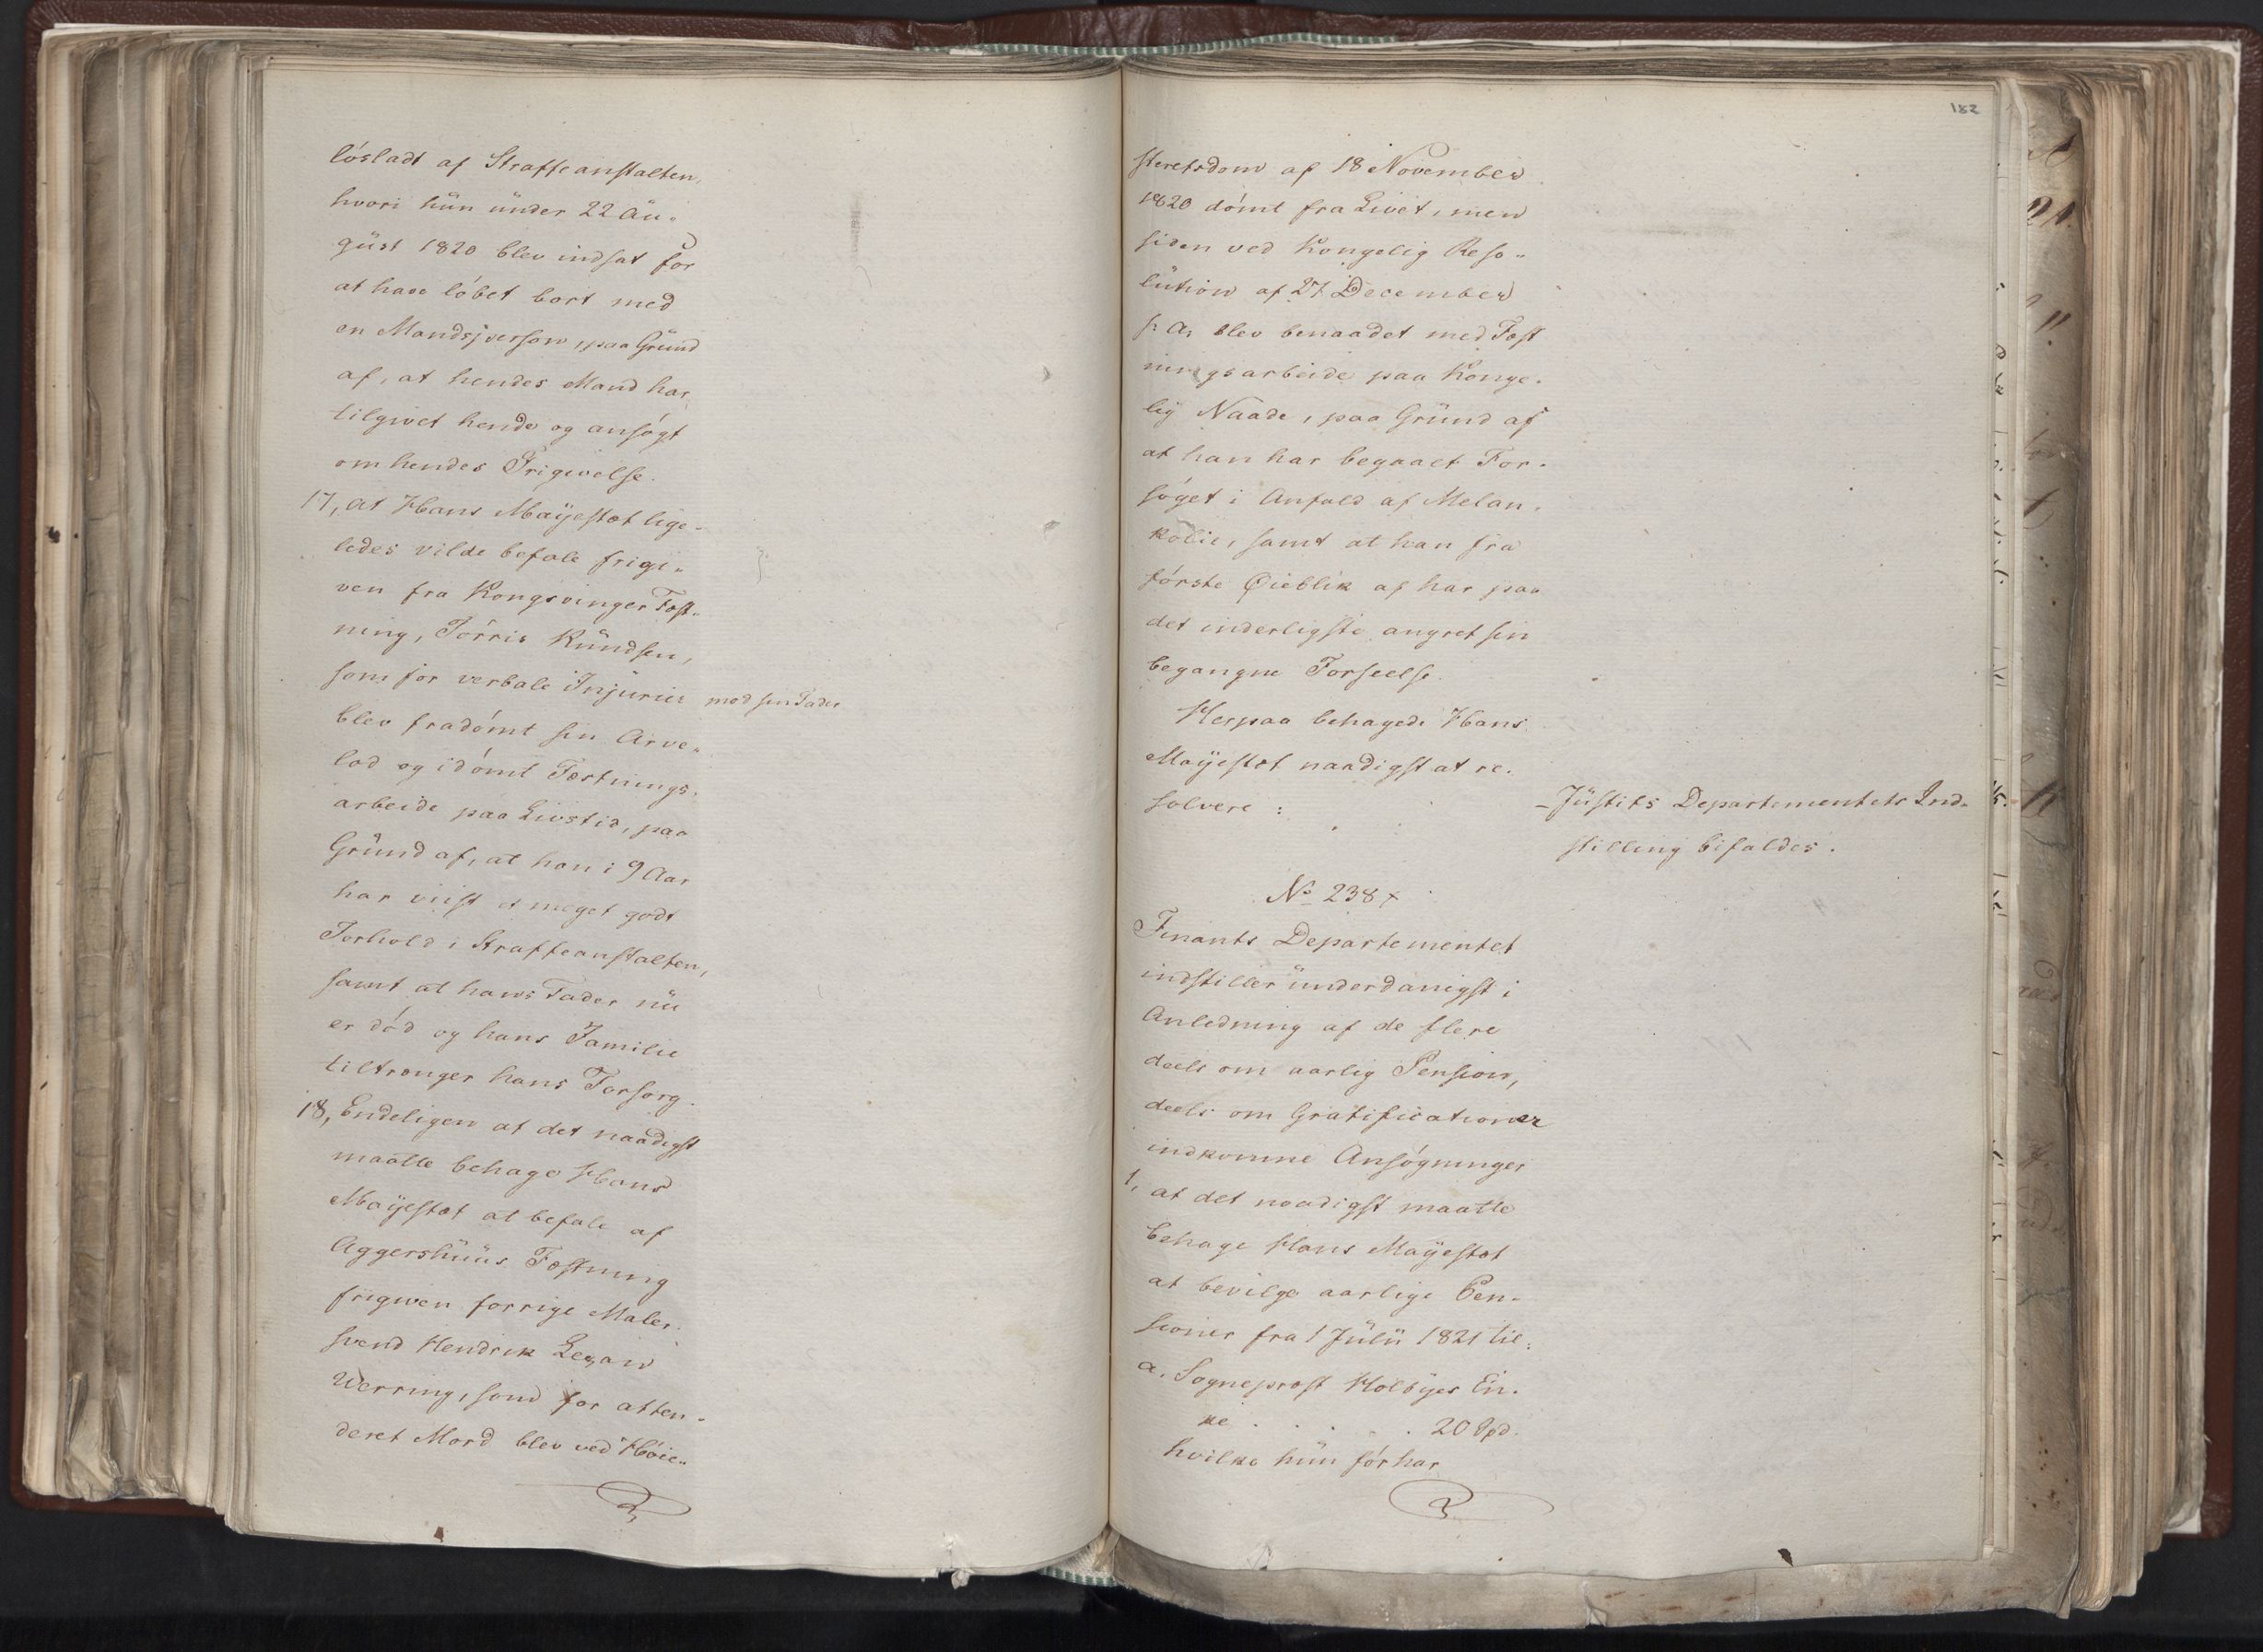 lösladt af Straffeanstalten,
hvori hün ünder 22 Aü-
güst 1820 blev indsat for
at have löbet bort med
en Mandsperson, paa Gründ
af, at hendes Mand har
tilgivet hende og ansögt
om hendes Frigivelse.
17, at Hans Mayestæt lige-
ledes vilde befale frigi-
ven fra Kongsvinger Fæst-
ning, Törris Knüdsen,
som for verbale Injürier mod sin Fader
blev fradömt sin Arve-
lod og idömt Fæstnings-
arbeide paa Livstid, paa
Gründ af, at han i 9 Aar
har viist et meget godt
Forhold i Straffeanstalten,
samt at hans Fader nü
er död og hans Familie
tiltrænger hans Forsorg.
18, Endeligen at det naadigst
maatte behage Hans
Mayestæt at befale af
Aggershüüs Fæstning
frigiven forrige Maler-
svend Hendrik
Werring, som for atten-
deret Mord blev ved Höie-
182
steretsdom af 18 November
1820 dömt fra Livet, men
siden ved Kongelig Reso-
lütion af 27 December
s. A. blev benaadet med Fæst
ningsarbeide paa Konge-
lig Naade, paa Gründ af
at han har begaaet For-
söget i Anfald af Melan-
kolie, samt at han fra
förste Öieblik af har paa
det inderligste angret sin
begangne Forseelse.
Herpaa behagede Hans
Mayestæt naadigst at re-
solvere:
- Jüstits Departementets Ind-
stilling bifaldes.
No 238 x
Finants Departementet
indstiller ünderdanigst i
Anledning af de flere
deels om aarlig Pension,
deels om Gratificationer
indkomne Ansögninger
1, at det naadigst maatte
behage Hans Mayestæt
at bevilge aarlige Pen-
sioner fra 1 Jülii 1821 til:
a. Sogneprest Holbyes En-
ke . . . . 20 Spd.
hvilke hün för har